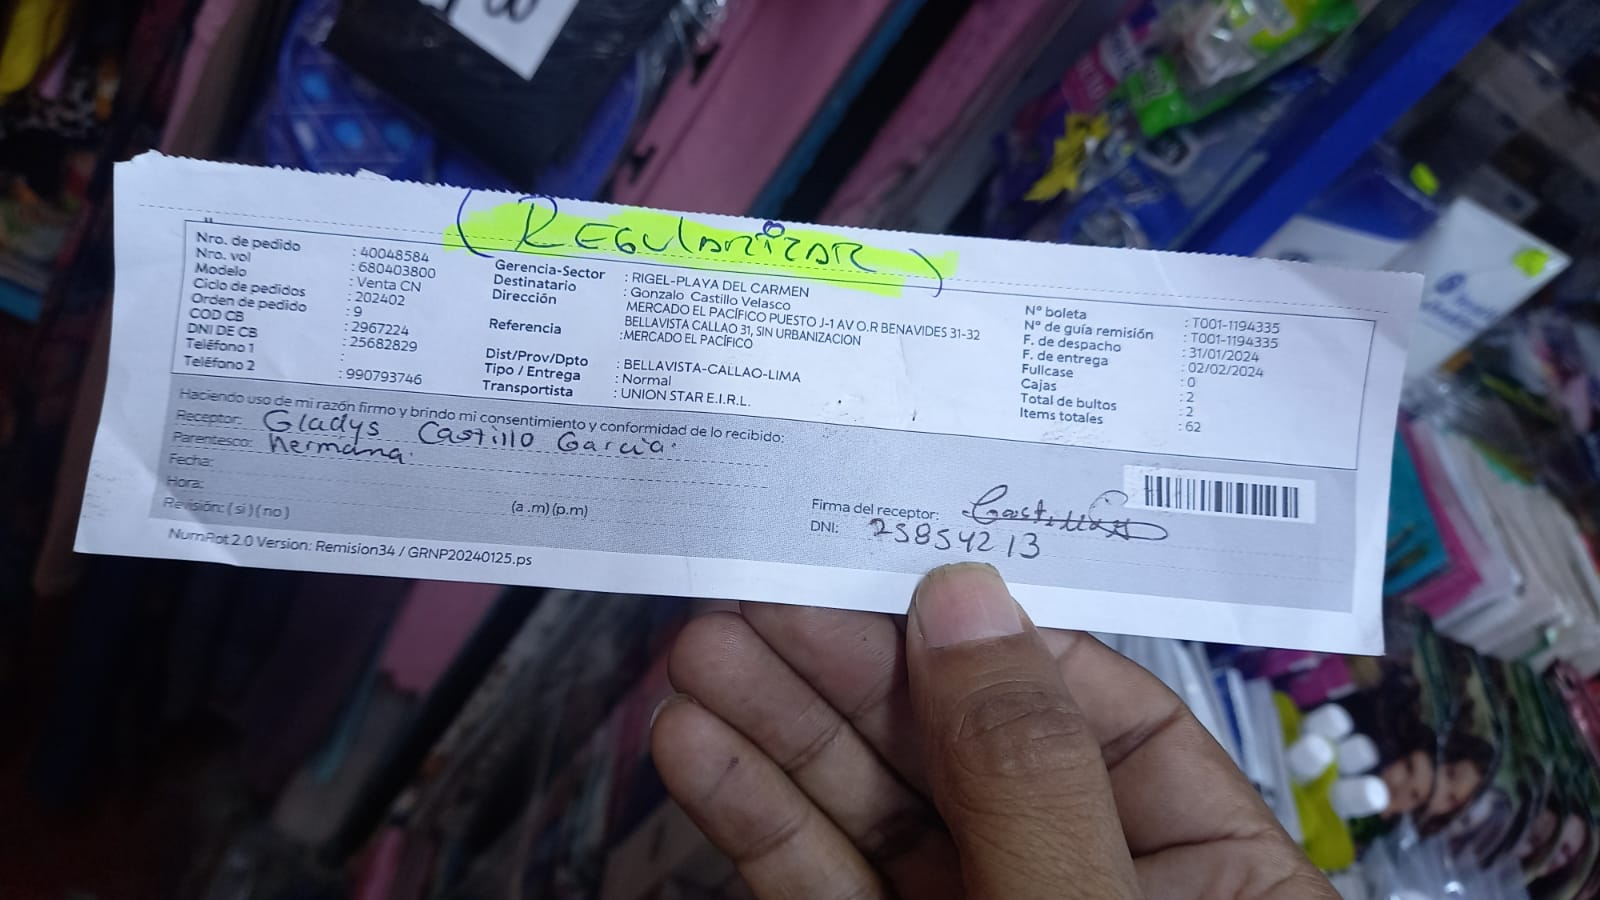 (REGULARIZAR)
Nro. de pedido : 40048584
Nro. vol : 680403800
Modelo : Venta CN
Ciclo de pedidos : 202402
Orden de pedido : 9
COD CB : 2967224
DNI DE CB : 25682829
Teléfono 1 :
Teléfono 2 : 990793746
Gerencia-Sector : RIGEL-PLAYA DEL CARMEN
Destinatario : Gonzalo Castillo Velasco
Dirección MERCADO EL PACÍFICO PUESTO J-1 AV O.R BENAVIDES 31-32
BELLAVISTA CALLAO 31, SIN URBANIZACION
Referencia :MERCADO EL PACÍFICO
Dist/Prov/Dpto : BELLAVISTA-CALLAO-LIMA
Tipo / Entrega : Normal
Transportista : UNION STAR E.I.R.L.
N° boleta : T001-1194335
N° de guía remisión : T001-1194335
F. de despacho : 31/01/2024
F. de entrega : 02/02/2024
Fullcase : 0
Cajas : 2
Total de bultos : 2
Items totales : 62
Haciendo uso de mi razón firmo y brindo mi consentimiento y conformidad de lo recibido:
Receptor: Gladys Castillo Garcia.
Parentesco: hermana.
Fecha:
Hora: (a .m) (p.m)
Revisión: ( si ) ( no )
Firma del receptor: Castillo
DNI: 25854213
NumRot 2.0 Version: Remision34 / GRNP20240125.ps